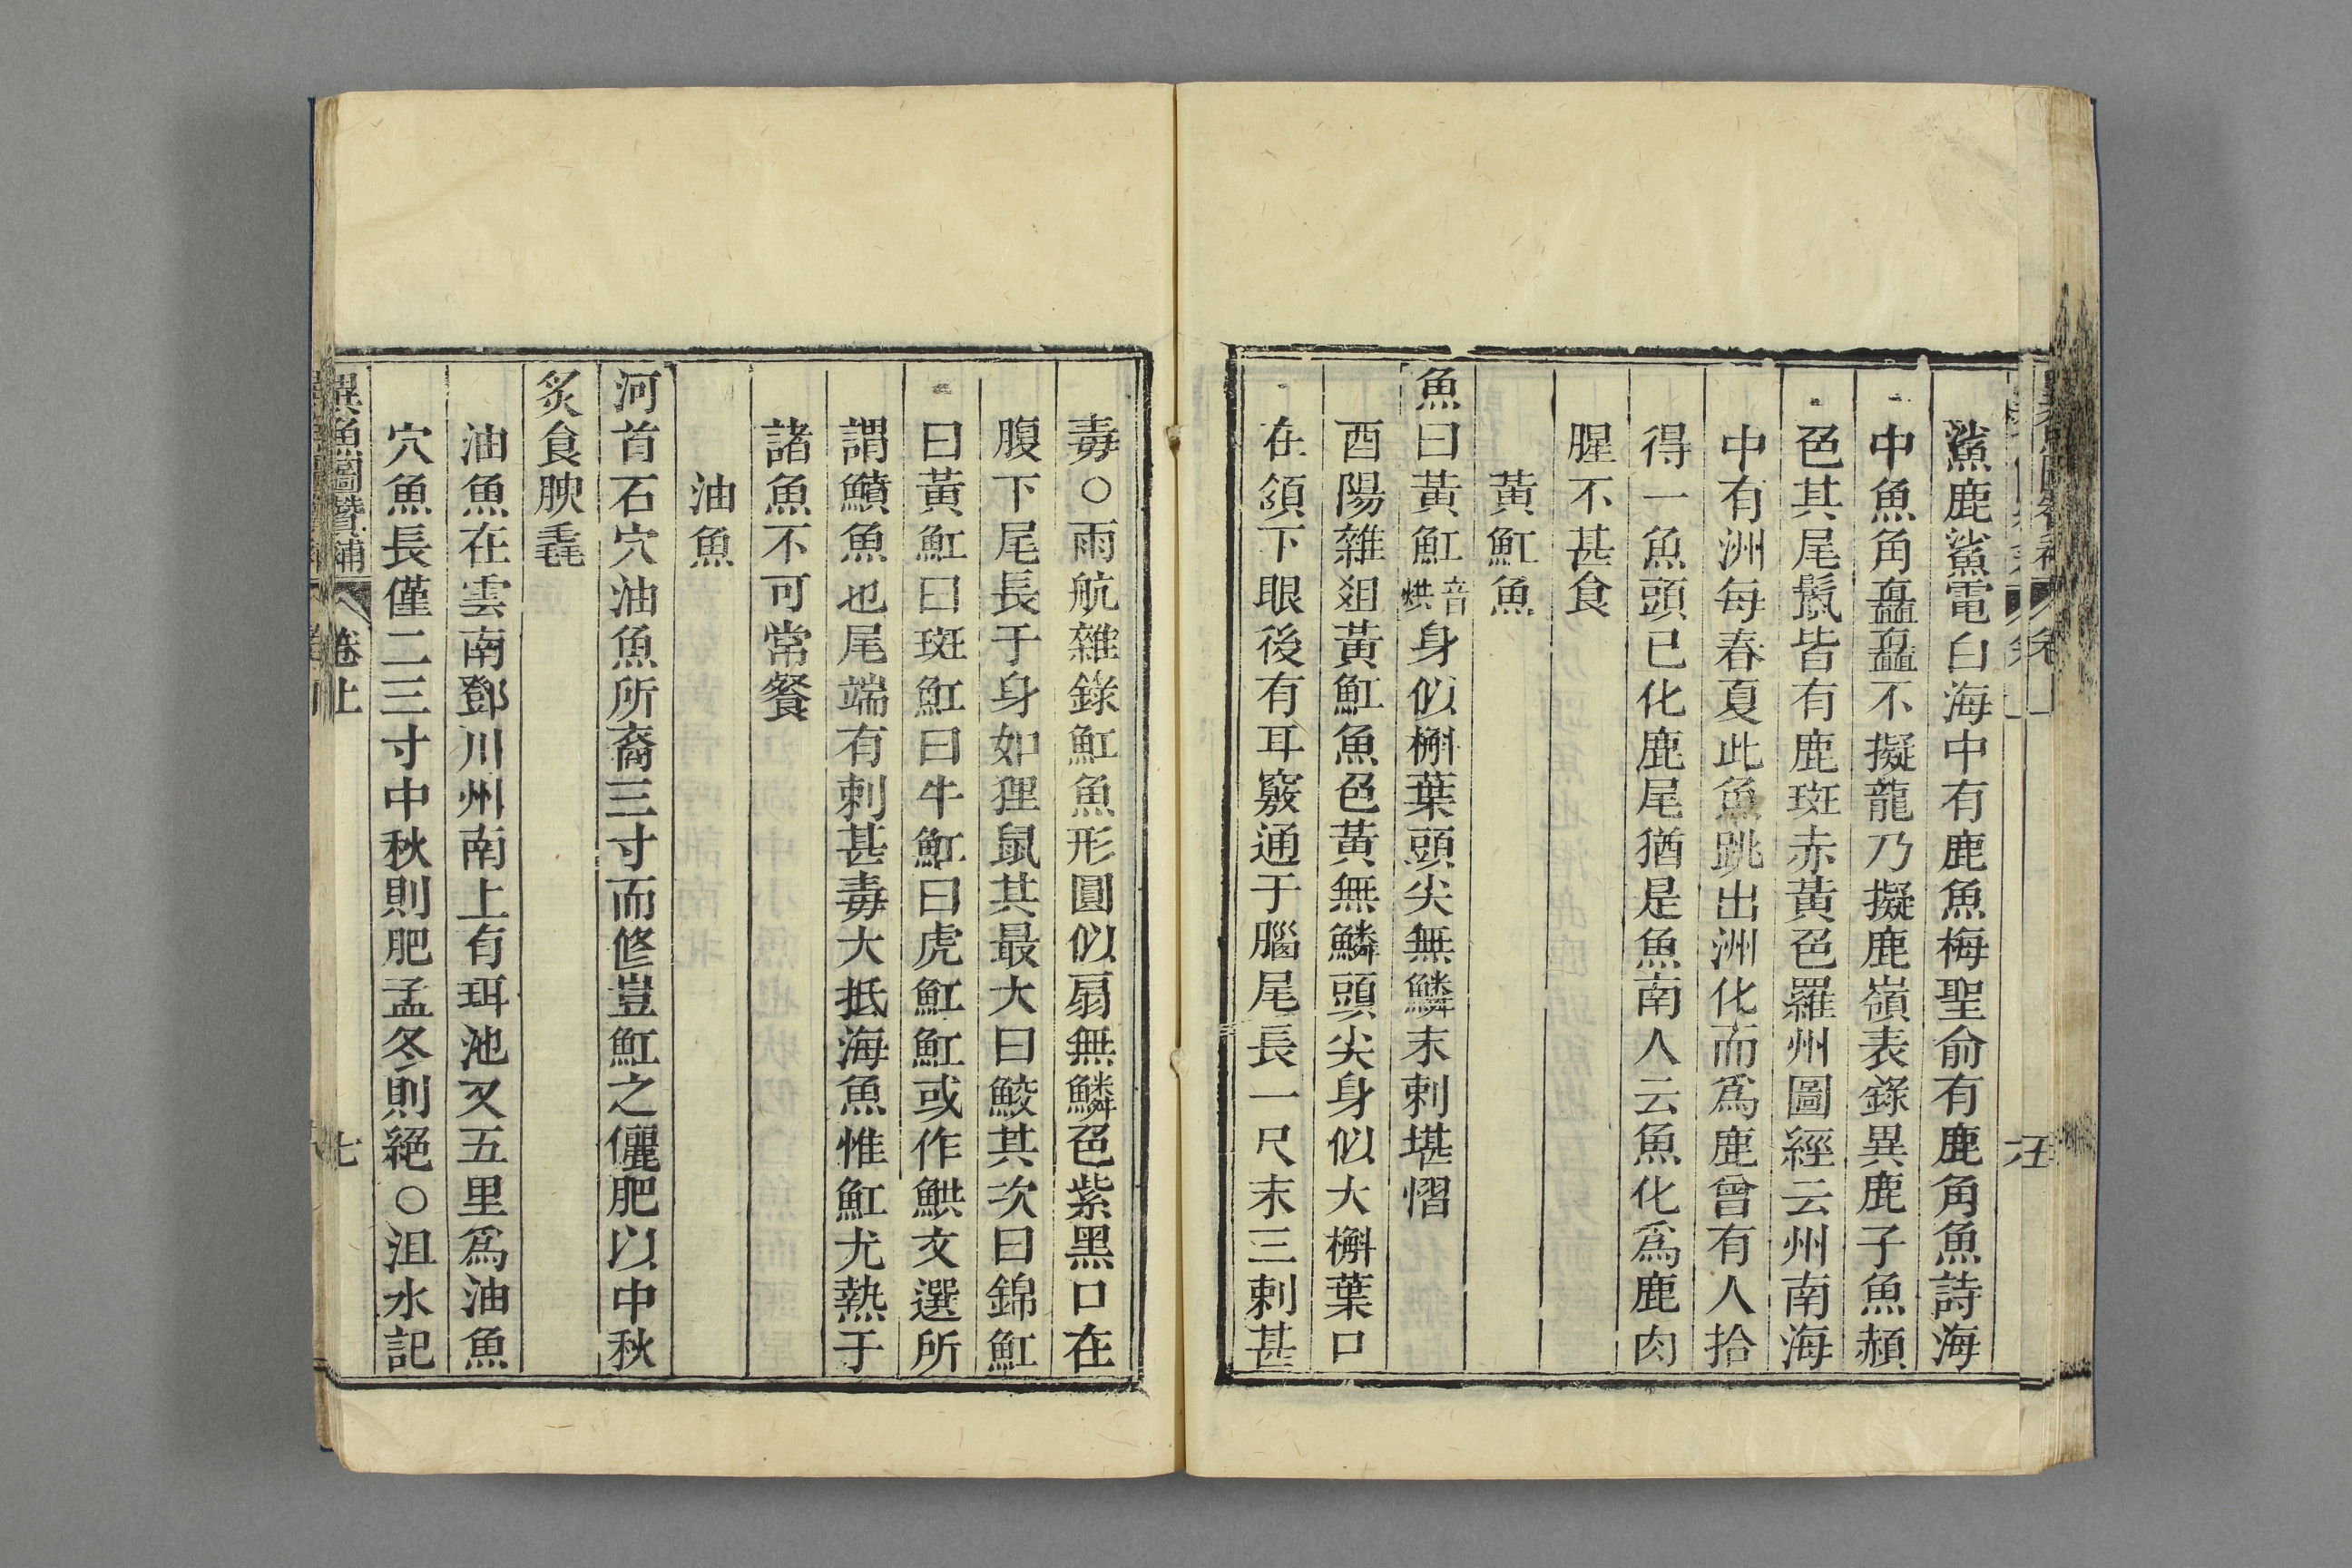 鯊鹿鯊電白海中有鹿魚梅聖俞有鹿角魚詩海
中魚角矗矗不擬龍乃擬鹿嶺表錄異鹿子魚赬
色其尾鬣皆有鹿斑赤黃色羅州圖經云州南海
中有洲每春夏此魚跳出洲化而爲鹿曾有人拾
得一魚頭已化鹿尾猶是魚南人云魚化爲鹿肉
腥不甚食
黃魟魚
魚曰黃魟音烘身似槲葉頭尖無鱗末剌堪慴
酉陽雜俎黃魟魚色黃無鱗頭尖身似大槲葉口
在頷下眼後有耳竅通于腦尾長一尺末三剌甚
毒○雨航雜錄魟魚形圓似扇無鱗色紫黑口在
腹下尾長于身如狸鼠其最大曰鮫其次曰錦魟
曰黃魟曰斑魟曰牛魟曰虎魟魟或作鮏文選所
謂鱝魚也尾端有刺甚毒大抵海魚惟魟尤熱于
諸魚不可常餐
油魚
河首石穴油魚所裔三寸而修豈魟之儷肥以中秋
炙食腴毳
油魚在雲南鄧川州南上有珥池又五里爲油魚
穴魚長僅二三寸中秋則肥孟冬則絕○沮水記
異魚圖贊補 卷上 七